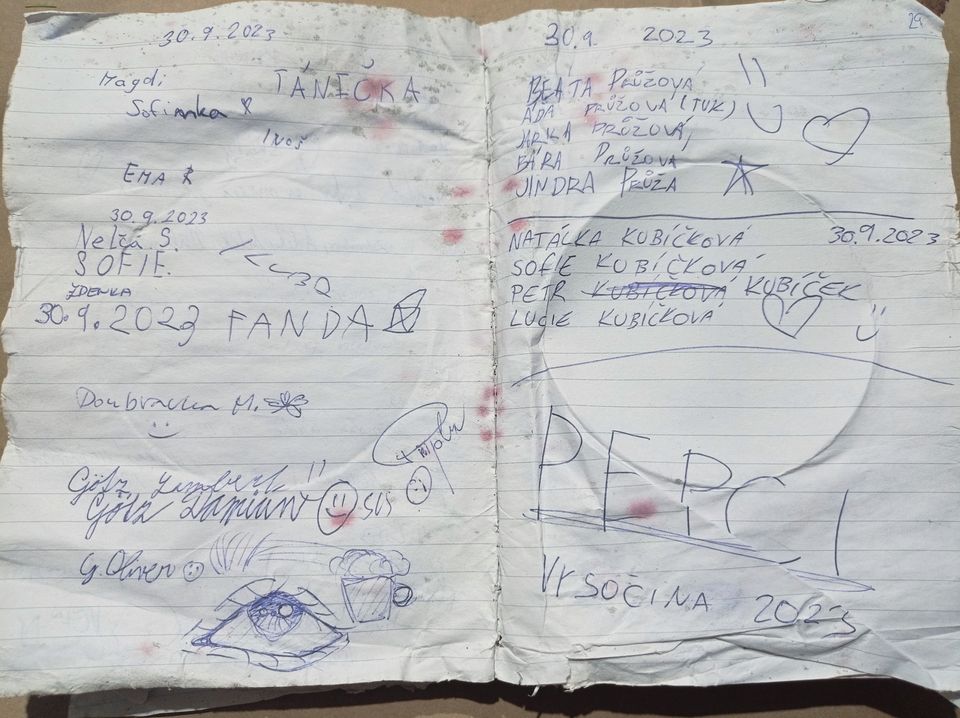 30.9.2023
Magdi
TÁNIČKA
Sofinka
INOŠ
EMA
30.9.2023
Nelča S.
SOFIE.
ZDENKA
30.9.2023 FANDA
Doubravka M.
Götz
Götz Damián SUS
G. Oliver
29
30.9. 2023
BEATA PRŮŽOVÁ
ÁDA PRŮŽOVÁ (TUK)
JARKA PRŮŽOVÁ,
BÁRA PRŮŽOVÁ
JINDRA PRŮŽA
NATÁLKA KUBÍČKOVÁ 30.9.2023
SOFIE KUBÍČKOVÁ
PETR KUBÍČKOVÁ KUBÍČEK
LUCIE KUBÍČKOVÁ
PEPCI
VYSOČINA 2023